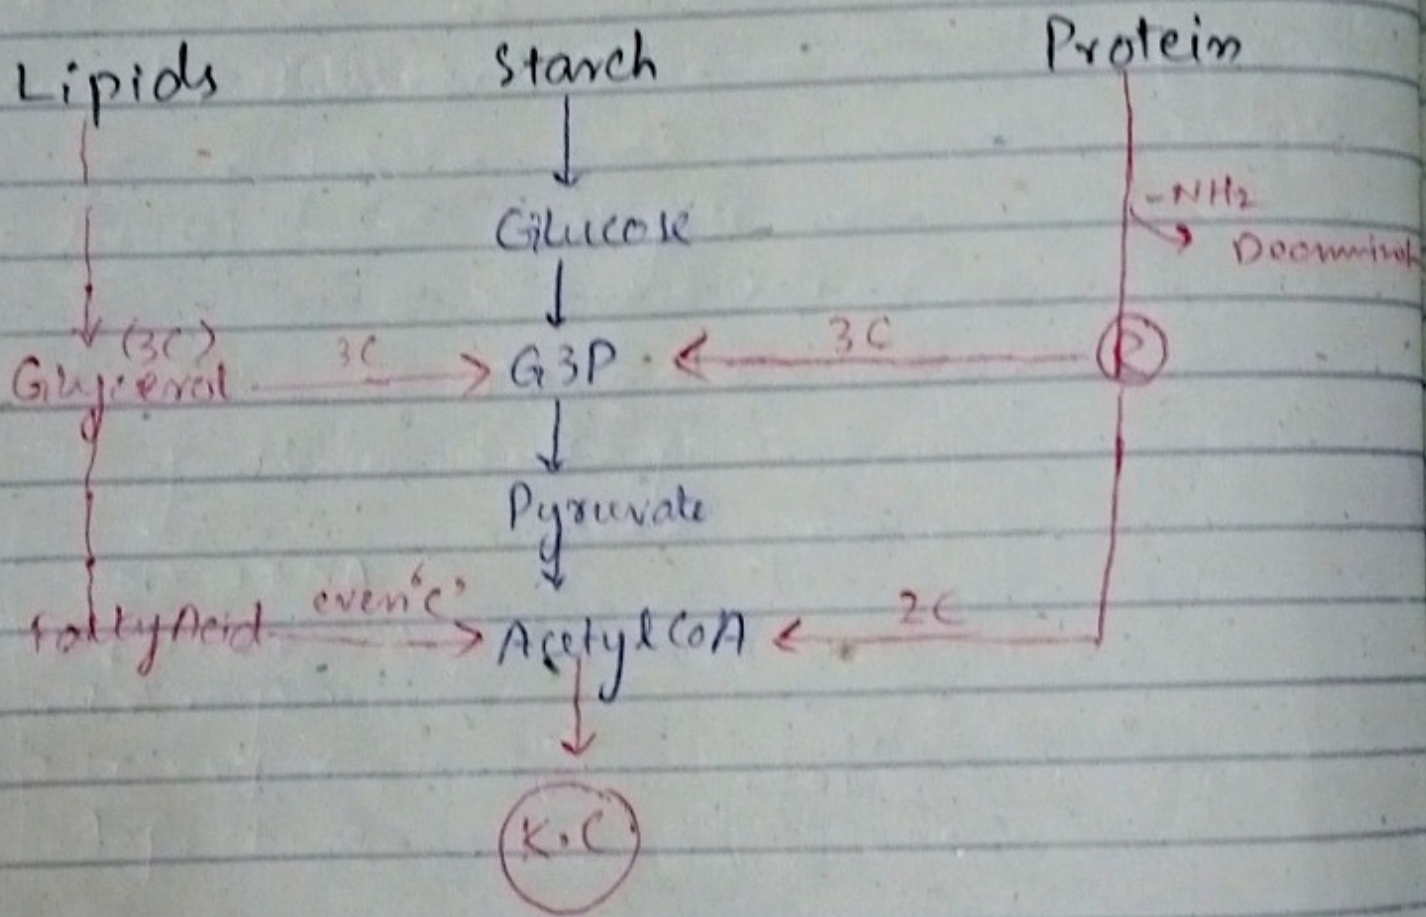 Lipids Starch Protein
Glucose
-NH2
(3C)
Glycerol 3C G3P 3C R
Pyruvate
fattyAcid even'c' Acetyl CoA 2C
K.C